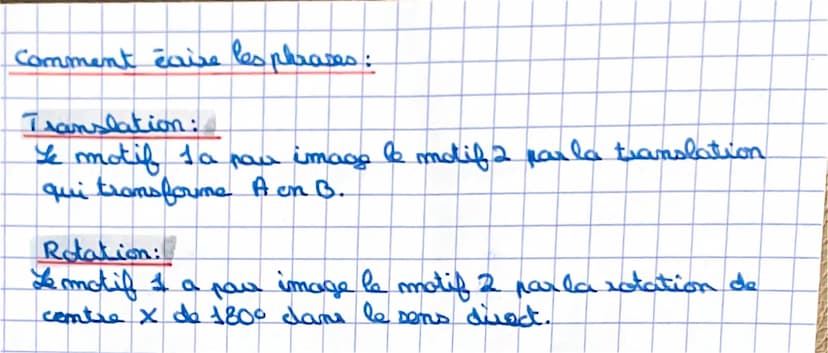 Comment écrire les phrases :
Translation :
Le motif 1 a pour image le motif 2 par la translation
qui transforme A en B.
Rotation :
Le motif 1 a pour image le motif 2 par la rotation de
centre X de 180° dans le sens direct.